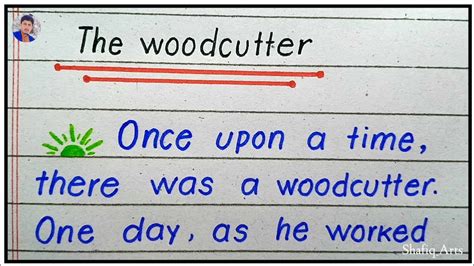 The woodcutter
Once upon a time,
there was a woodcutter.
One day, as he worked
Shafiq Arts